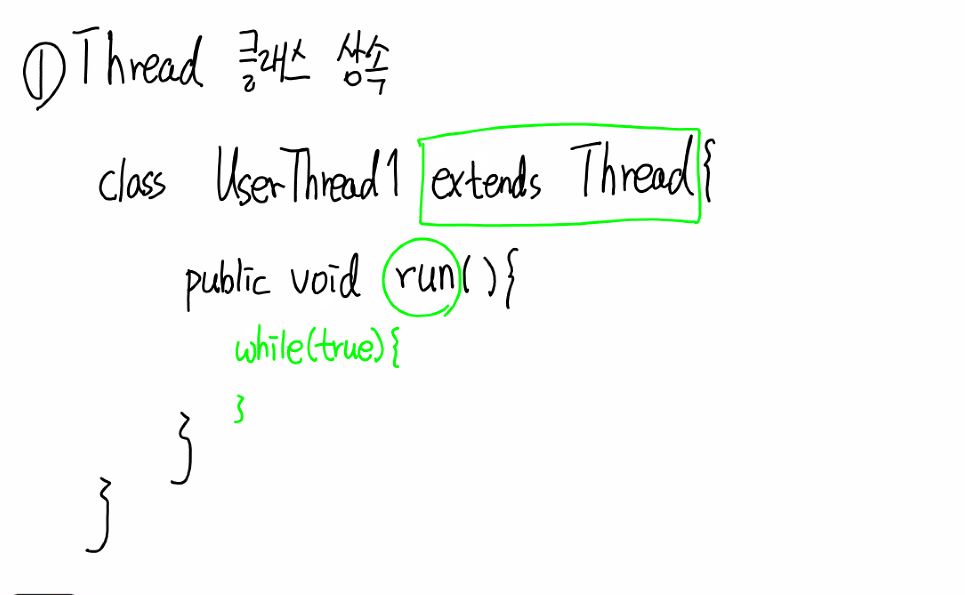 ① Thread 클래스 상속
class UserThread1 extends Thread{
public void run(){
while(true){
}
}
}